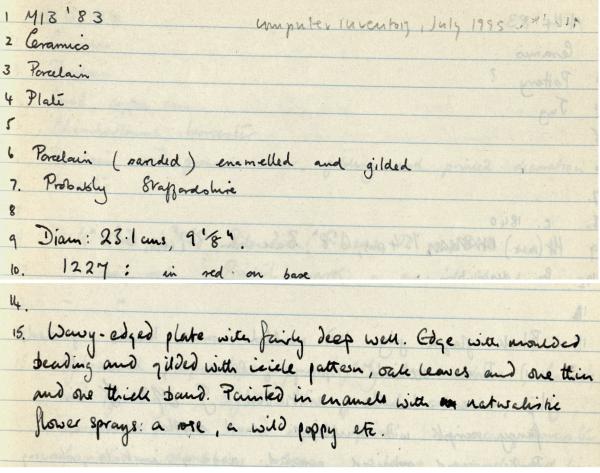 1 M13 '83 computer inventory, July 1995
2 Ceramics
3 Porcelain
4 Plate
5
6 Porcelain (sanded) enamelled and gilded
7. Probably Staffordshire
8
9 Diam: 23.1 cms, 9 1/8".
10. 1227: in red on base
14.
15. Wavy-edged plate with fairly deep well. Edge with moulded
beading and gilded with icicle pattern, oak leaves and one thin
and one thick band. Painted in enamels with naturalistic
flower sprays: a rose, a wild poppy etc.